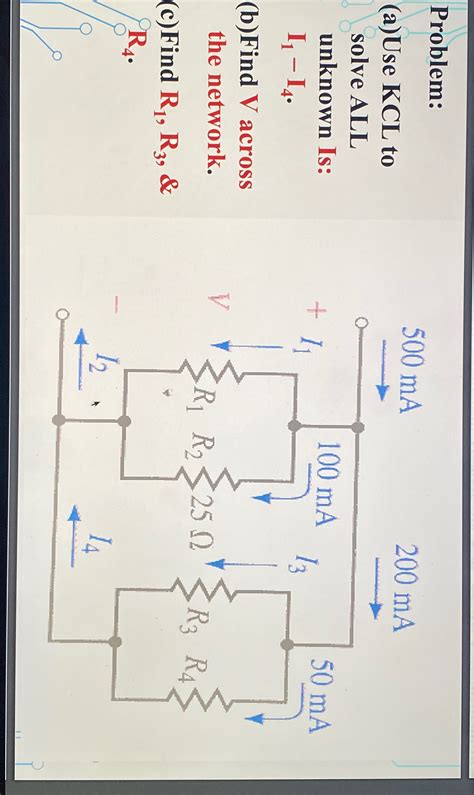 Problem:
(a)Use KCL to
solve ALL
unknown Is:
I₁ – I₄.
(b)Find V across
the network.
(c)Find R₁, R₃, &
R₄.
500 mA
200 mA
+
I₁
100 mA
I₃
50 mA
V
R₁
R₂
25 Ω
R₃
R₄
−
I₂
I₄